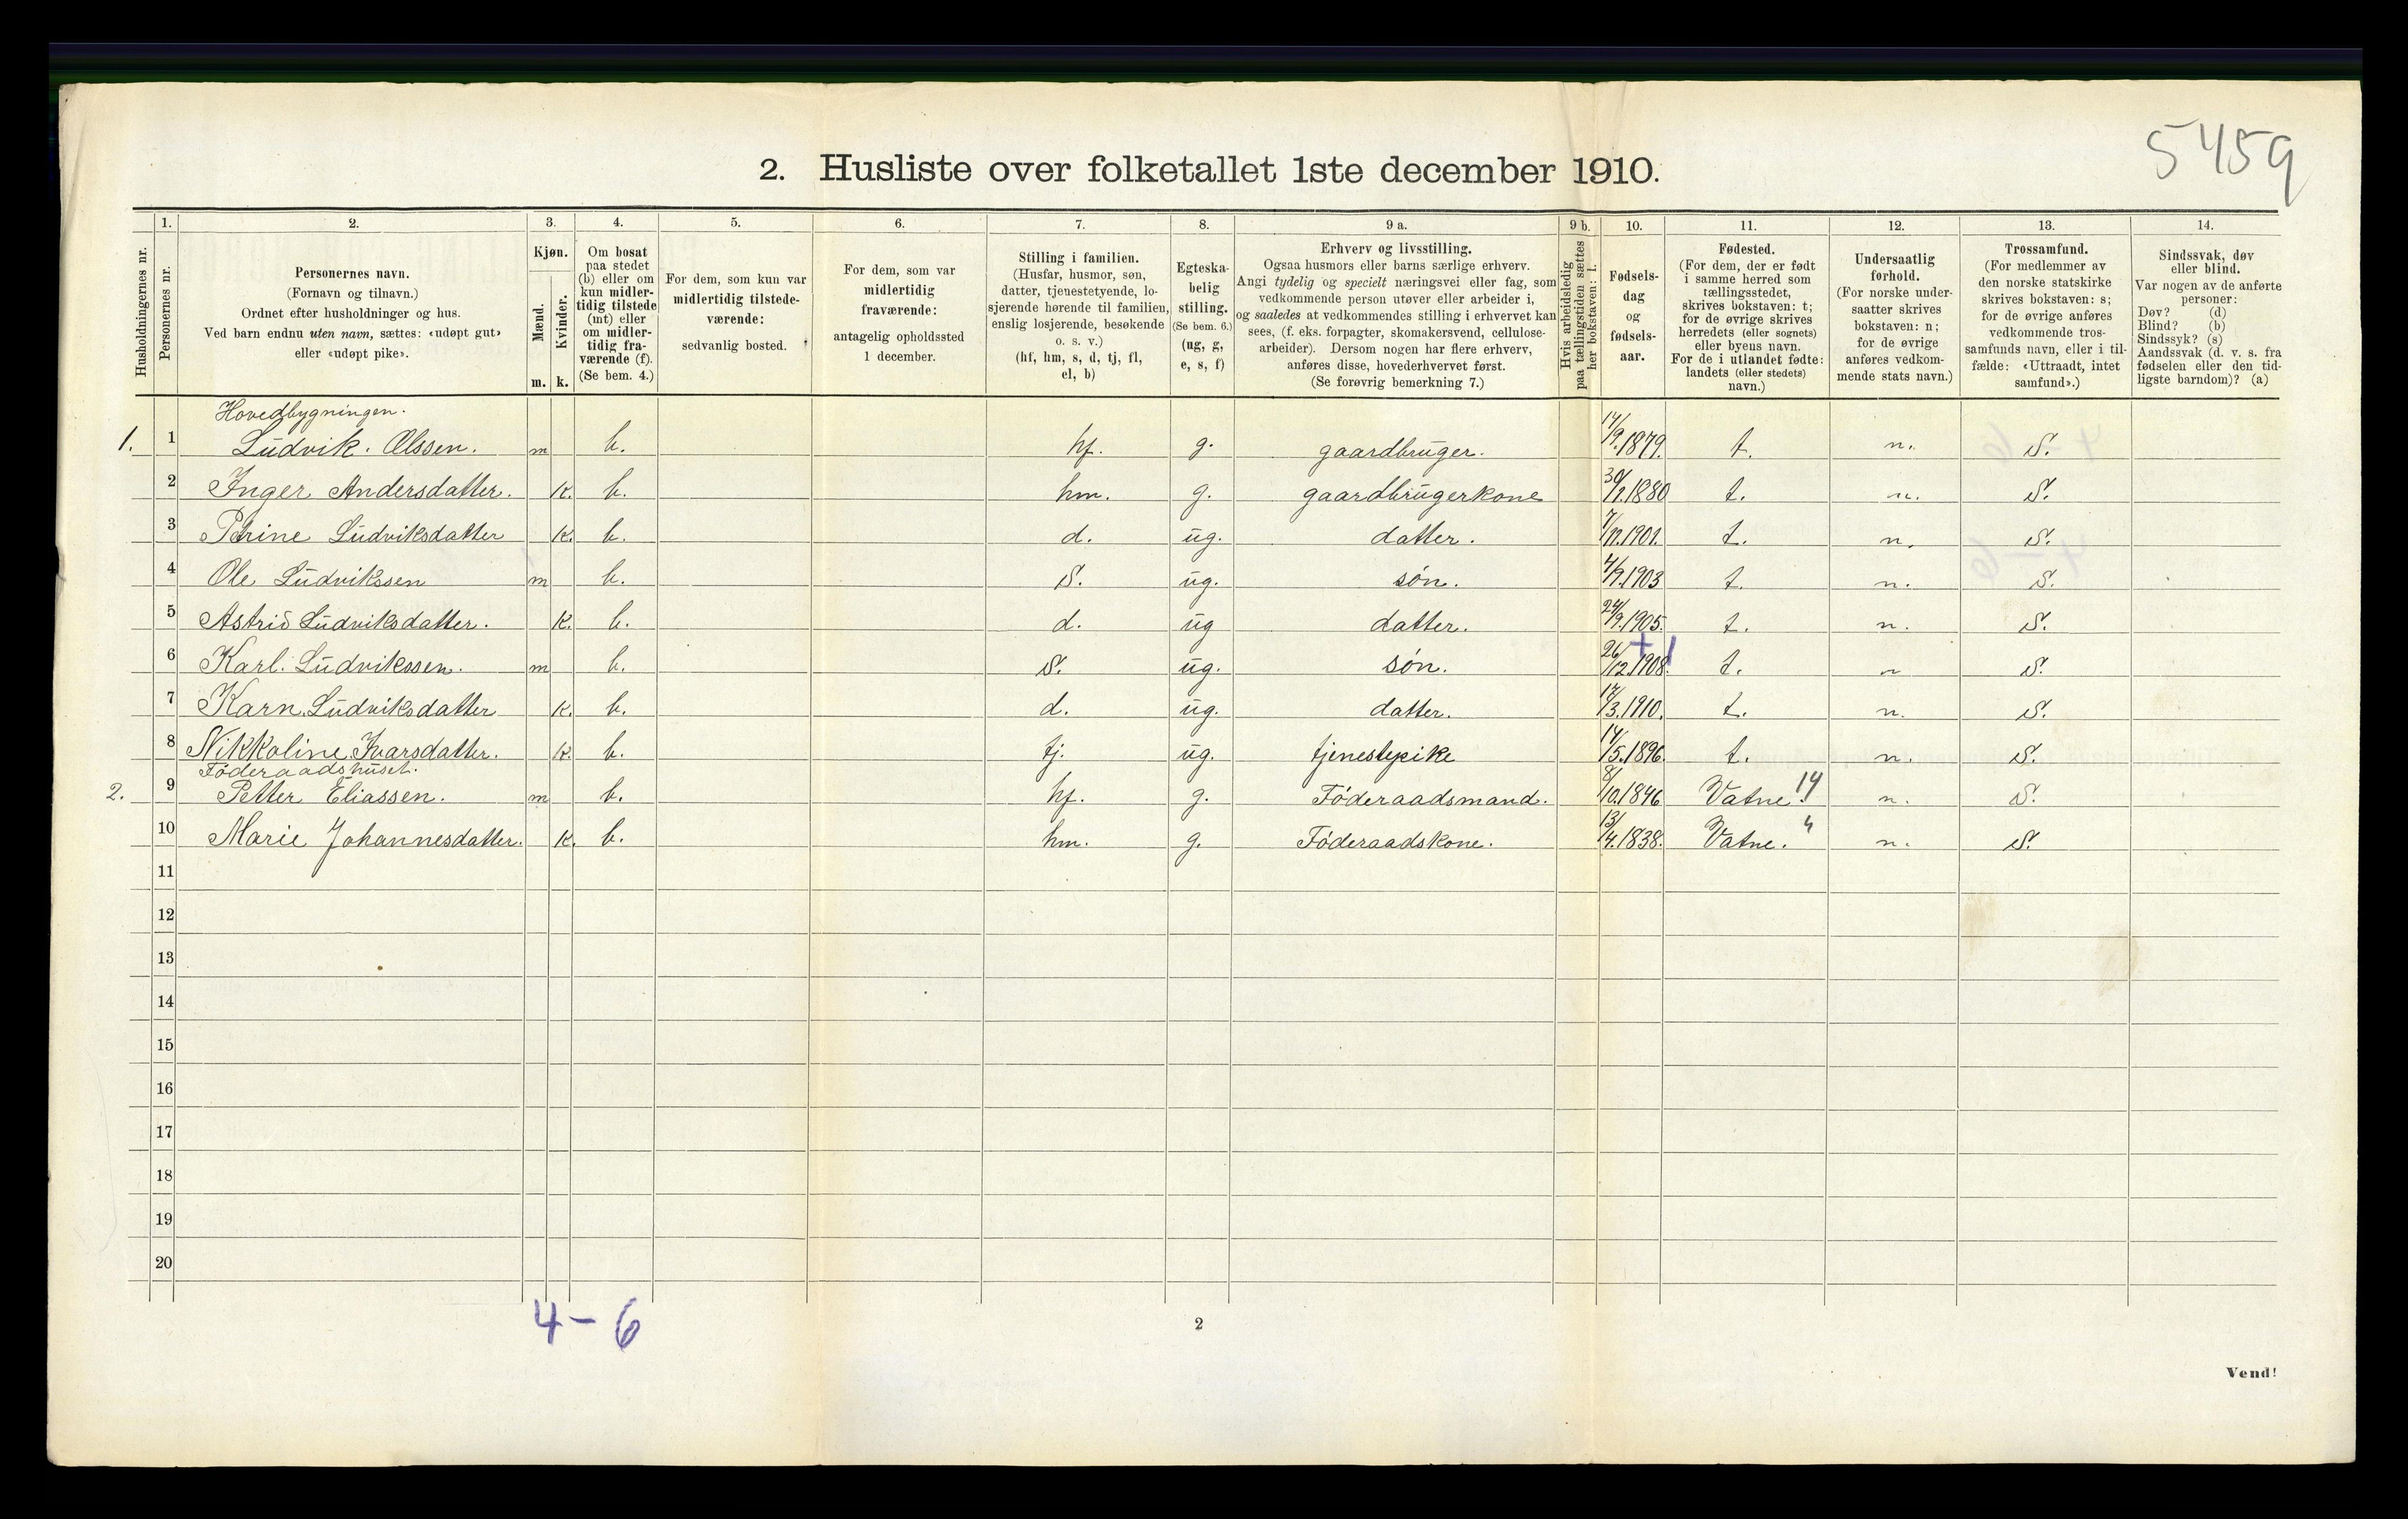 5459
2. Husliste over folketallet 1ste december 1910.
Husholdningernes nr.
1.
Personernes nr.
2.
Personernes navn.
(Fornavn og tilnavn.)
Ordnet efter husholdninger og hus.
Ved barn endnu uten navn, sættes: «udøpt gut»
eller «udøpt pike».
3.
Kjøn.
Mænd.
Kvinder.
m. k.
4.
Om bosat
paa stedet
(b) eller om
kun midler-
tidig tilstede
(mt) eller
om midler-
tidig fra-
værende (f).
(Se bem. 4.)
5.
For dem, som kun var
midlertidig tilstede-
værende:
sedvanlig bosted.
6.
For dem, som var
midlertidig
fraværende:
antagelig opholdssted
1 december.
7.
Stilling i familien.
(Husfar, husmor, søn,
datter, tjenestetyende, lo-
sjerende hørende til familien,
enslig losjerende, besøkende
o. s. v.)
(hf, hm, s, d, tj, fl,
el, b)
8.
Egteska-
belig
stilling.
(Se bem. 6.)
(ug, g,
e, s, f)
9 a.
Erhverv og livsstilling.
Ogsaa husmors eller barns særlige erhverv.
Angi tydelig og specielt næringsvei eller fag, som
vedkommende person utøver eller arbeider i,
og saaledes at vedkommendes stilling i erhvervet kan
sees, (f. eks. forpagter, skomakersvend, cellulose-
arbeider). Dersom nogen har flere erhverv,
anføres disse, hovederhvervet først.
(Se forøvrig bemerkning 7.)
9 b.
Hvis arbeidsledig
paa tællingstiden sættes
her bokstaven: l.
10.
Fødsels-
dag
og
fødsels-
aar.
11.
Fødested.
(For dem, der er født
i samme herred som
tællingsstedet,
skrives bokstaven: t;
for de øvrige skrives
herredets (eller sognets)
eller byens navn.
For de i utlandet fødte:
landets (eller stedets)
navn.)
12.
Undersaatlig
forhold.
(For norske under-
saatter skrives
bokstaven: n;
for de øvrige
anføres vedkom-
mende stats navn.)
13.
Trossamfund.
(For medlemmer av
den norske statskirke
skrives bokstaven: s;
for de øvrige anføres
vedkommende tros-
samfunds navn, eller i til-
fælde: «Uttraadt, intet
samfund».)
14.
Sindssvak, døv
eller blind.
Var nogen av de anførte
personer:
Døv? (d)
Blind? (b)
Sindssyk? (s)
Aandssvak (d. v. s. fra
fødselen eller den tid-
ligste barndom)? (a)
Hovedbygningen.
1. 1 Ludvik. Olssen. m b. hf. g. gaardbruger. 1879. t. n. S.
2 Inger Andersdatter. k. b. hm. g. gaardbrugerkone 1880 t. n. S.
3 Petrine Ludviksdatter k. b. d. ug. datter. 1901. t. n. S.
4 Ole Ludvikssen m b. S. ug. søn. 4/9.1903 t. n. S.
5 Astrid Ludviksdatter. k. b. d. ug datter. 24/9.1905. t. n. S.
6 Karl. Ludvikssen. m b. S. ug. søn. 26/12.1908. t. n S.
7 Karn. Ludviksdatter k. b. d. ug. datter. 17/3.1910. t. n. S.
8 Nikkoline. Ivarsdatter. k. b. tj. ug. tjenestepike 14/5.1896. t. n. S.
Föderaadshuset.
2. 9 Petter Eliassen. m b. hf. g. Föderaadsmand. 8/10.1846 Vatne. 14 n. S.
10 Marie Johannesdatter. k. b. hm. g. Föderaadskone. 13/4.1838. Vatne. " n. S.
11
12
13
14
15
16
17
18
19
20
4 - 6
2
Vend!